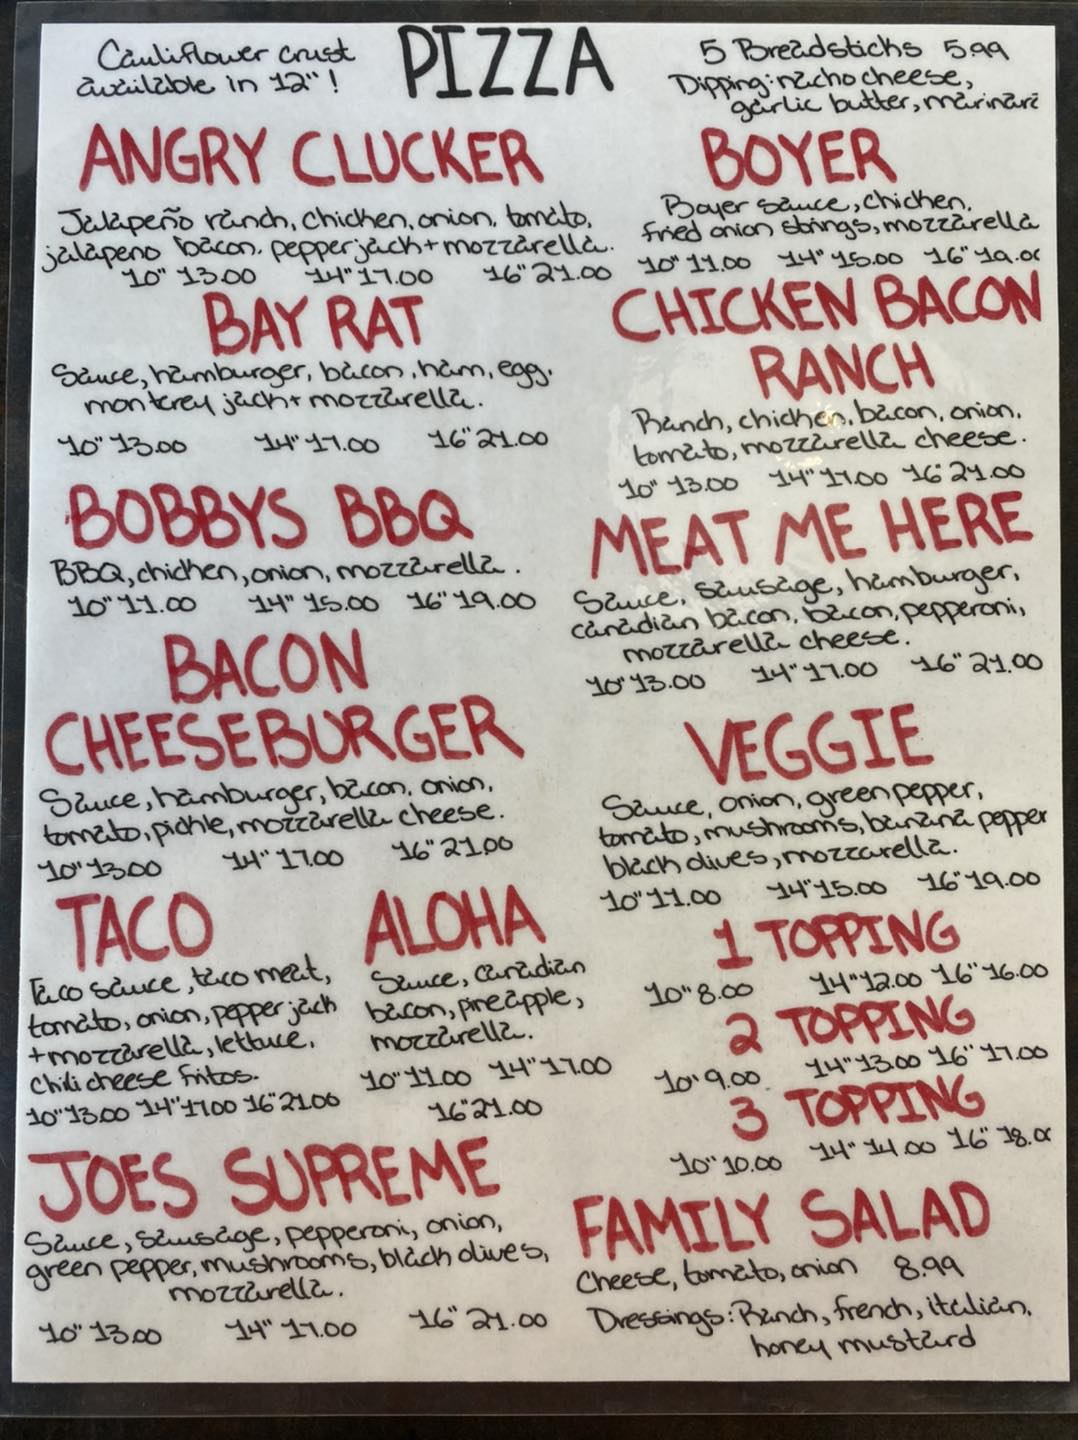 Cauliflower crust
available in 12"!
PIZZA
5 Breadsticks 5.99
Dipping: nacho cheese,
garlic butter, marinara
ANGRY CLUCKER
Jalapeño ranch, chicken, onion, tomato,
jalapeno bacon, pepperjack + mozzarella.
10" 13.00 14" 17.00 16" 21.00
BAY RAT
Sauce, hamburger, bacon, ham, egg,
monterey jack + mozzarella.
10" 13.00 14" 17.00 16" 21.00
BOBBYS BBQ
BBQ, chicken, onion, mozzarella.
10" 11.00 14" 15.00 16" 19.00
BACON
CHEESEBURGER
Sauce, hamburger, bacon, onion,
tomato, pickle, mozzarella cheese.
10" 13.00 14" 17.00 16" 21.00
TACO
Taco sauce, taco meat,
tomato, onion, pepper jack
+ mozzarella, lettuce,
chili cheese fritos.
10" 13.00 14" 17.00 16" 21.00
ALOHA
Sauce, canadian
bacon, pineapple,
mozzarella.
10" 11.00 14" 17.00
16" 21.00
JOES SUPREME
Sauce, sausage, pepperoni, onion,
green pepper, mushrooms, black olives,
mozzarella.
10" 13.00 14" 17.00 16" 21.00
BOYER
Boyer sauce, chicken,
fried onion strings, mozzarella
10" 11.00 14" 15.00 16" 19.00
CHICKEN BACON
RANCH
Ranch, chicken, bacon, onion,
tomato, mozzarella cheese.
10" 13.00 14" 17.00 16" 21.00
MEAT ME HERE
Sauce, sausage, hamburger,
canadian bacon, bacon, pepperoni,
mozzarella cheese.
10" 13.00 14" 17.00 16" 21.00
VEGGIE
Sauce, onion, green pepper,
tomato, mushrooms, banana pepper
black olives, mozzarella.
10" 11.00 14" 15.00 16" 19.00
1 TOPPING
10" 8.00 14" 12.00 16" 16.00
2 TOPPING
10" 9.00 14" 13.00 16" 17.00
3 TOPPING
10" 10.00 14" 14.00 16" 18.00
FAMILY SALAD
Cheese, tomato, onion 8.99
Dressings: Ranch, french, italian,
honey mustard